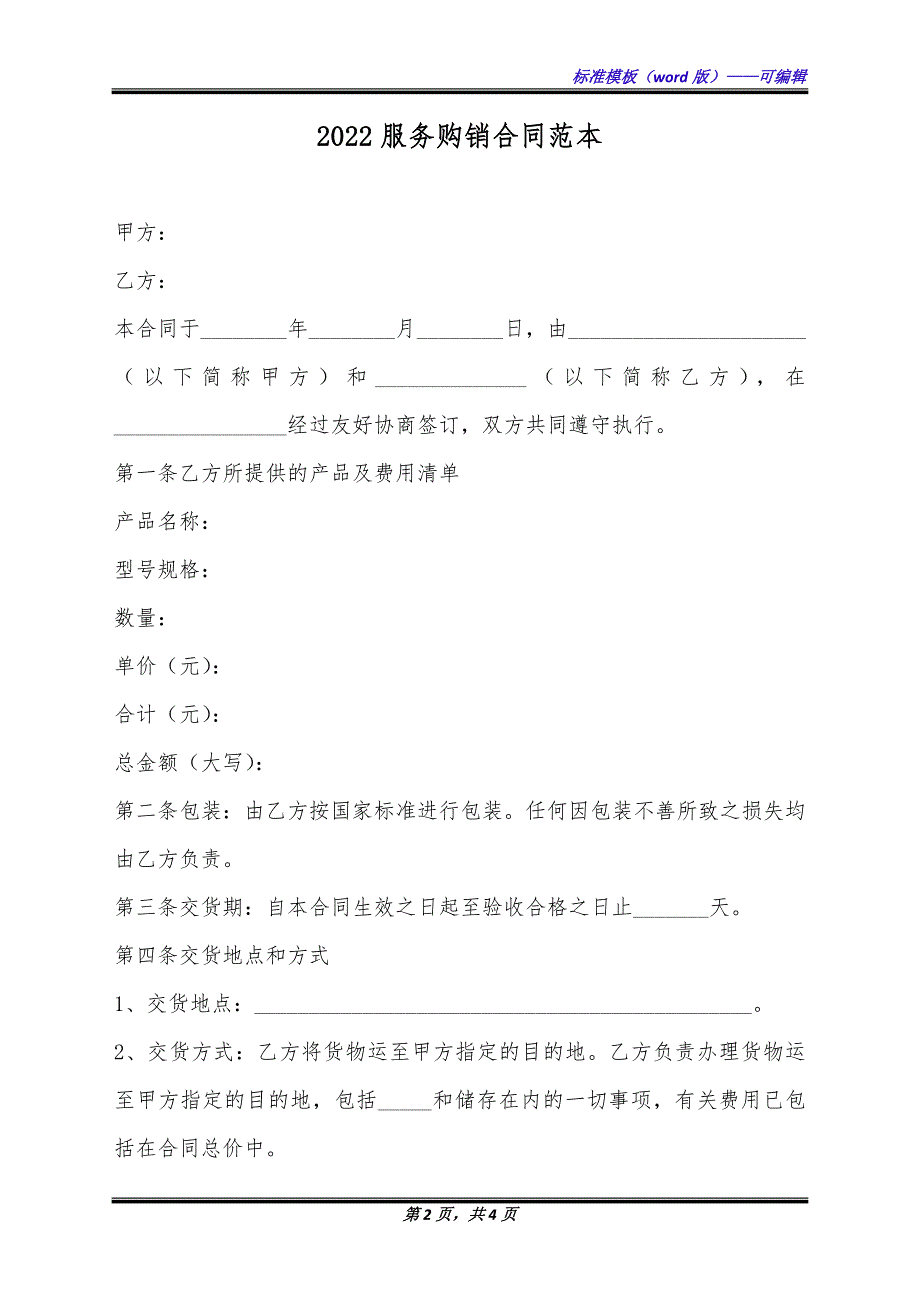 标准模板（word 版）——可编辑
2022 服务购销合同范本
甲方：
乙方：
本合同于________年________月________日，由______________________
（以下简称甲方）和______________（以下简称乙方），在
________________经过友好协商签订，双方共同遵守执行。
第一条乙方所提供的产品及费用清单
产品名称：
型号规格：
数量：
单价（元）：
合计（元）：
总金额（大写）：
第二条包装：由乙方按国家标准进行包装。任何因包装不善所致之损失均
由乙方负责。
第三条交货期：自本合同生效之日起至验收合格之日止_______天。
第四条交货地点和方式
1、交货地点：______________________________________________。
2、交货方式：乙方将货物运至甲方指定的目的地。乙方负责办理货物运
至甲方指定的目的地，包括_____和储存在内的一切事项，有关费用已包
括在合同总价中。
第 2 页，共 4 页